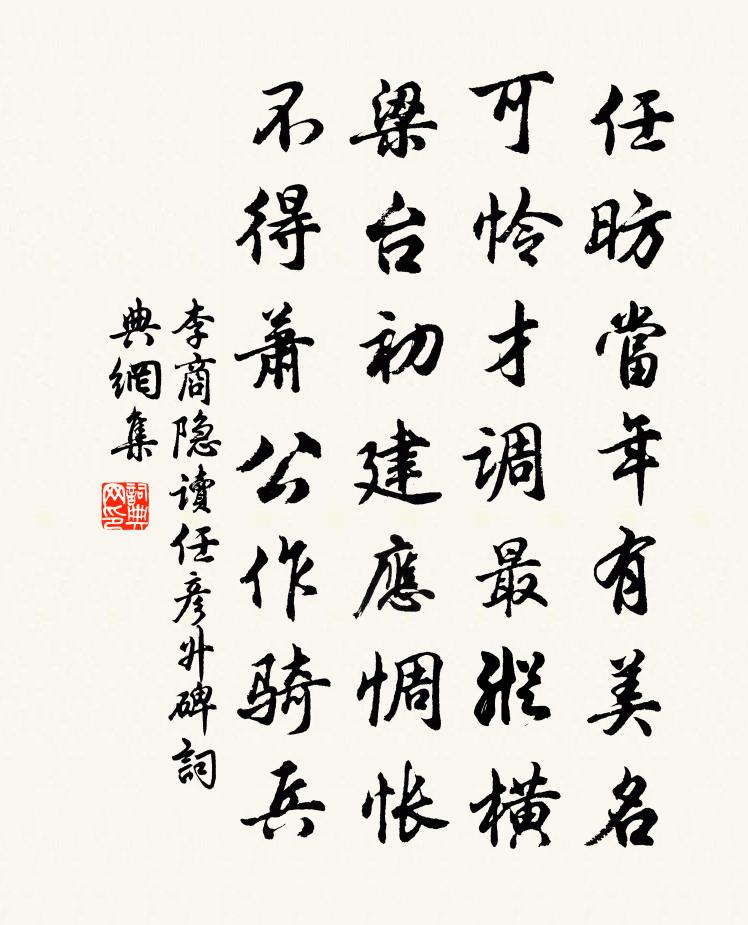 任昉當年有美名
可怜才调最縱橫
梁台初建應惆怅
不得萧公作骑兵
李商隐讀任彦升碑詞
典網集
詞典网印